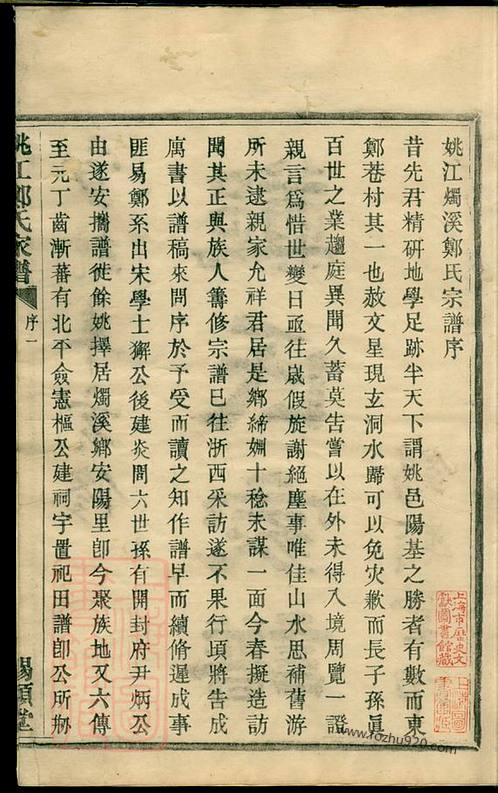 姚江燭溪鄭氏宗譜序
昔先君精研地學足跡半天下謂姚邑陽基之勝者有數而東
鄭巷村其一也赦文星現玄洞水歸可以免灾歉而長子孫眞
百世之業趨庭異聞久蓄莫吿嘗以在外未得入境周覽一證
親言爲惜世變日亟往歲假旋謝絕塵事唯佳山水思補舊游
所未逮親家允祥君居是鄉締婣十稔未謀一面今春擬造訪
聞其正與族人籌修宗譜已往浙西采訪遂不果行頃將吿成
寓書以譜稿來問序於予受而讀之知作譜早而續修遲成事
匪易鄭系出宋學士獬公後建炎間六世孫有開封府尹炳公
由遂安攜譜徙餘姚擇居燭溪鄉安陽里卽今聚族地又六傳
至元丁齒漸蕃有北平僉憲樞公建祠宇置祀田譜卽公所刱
姚江鄭氏家譜
序一
錫類堂
上海市歷史文
獻圖書館藏
www.rozhu920.com